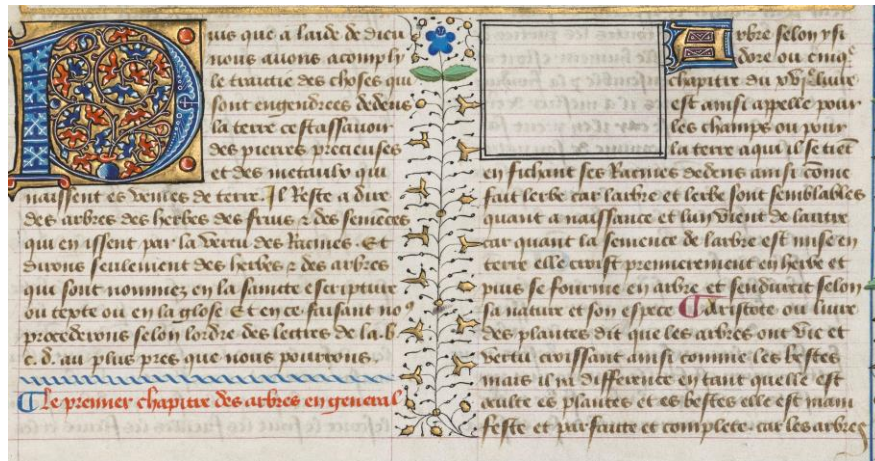 Puis que a laide de dieu
nous auons acomply
le traictie des choses qui
sont engendrees dedens
la terre cestassauoir
des pierres precieuses
et des metaulx qui
naissent es veines de terre. Il Reste a dire
des arbres des herbes des fruis ⁊ des semēces
qui en issent par la vertu des Racines. Et
dirons seulement des herbes ⁊ des arbres
qui sont nommez en la saincte escripture
ou texte ou en la glose Et en ce faisant noꝰ
procederons selon lordre des lectres de la. b
c. d. au plus pres que nous pourrons.
¶Le premier chapitre des arbres en general
Arbre selon ysi
dore ou cinqᵉ
chapitre du xvijᵉ liure
est ainsi appelle pour
les champs ou pour
la terre a qui il se tiēt
en fichant ses Racines dedens ainsi cōme
fait lerbe car larbre et lerbe sont semblables
quant a naissance et lun vient de lautre
car quant la semence de larbre est mise en
terre elle croist premierement en herbe et
puis se fourme en arbre et sendurcit selon
sa nature et son espece ¶Aristote ou liure
des plantes dit que les arbres ont vie et
vertu croissant ainsi comme les bestes
mais il ya difference en tant quelle est
oculte es plantes et es bestes elle est mani
feste et parfaite et complete. car les arbres